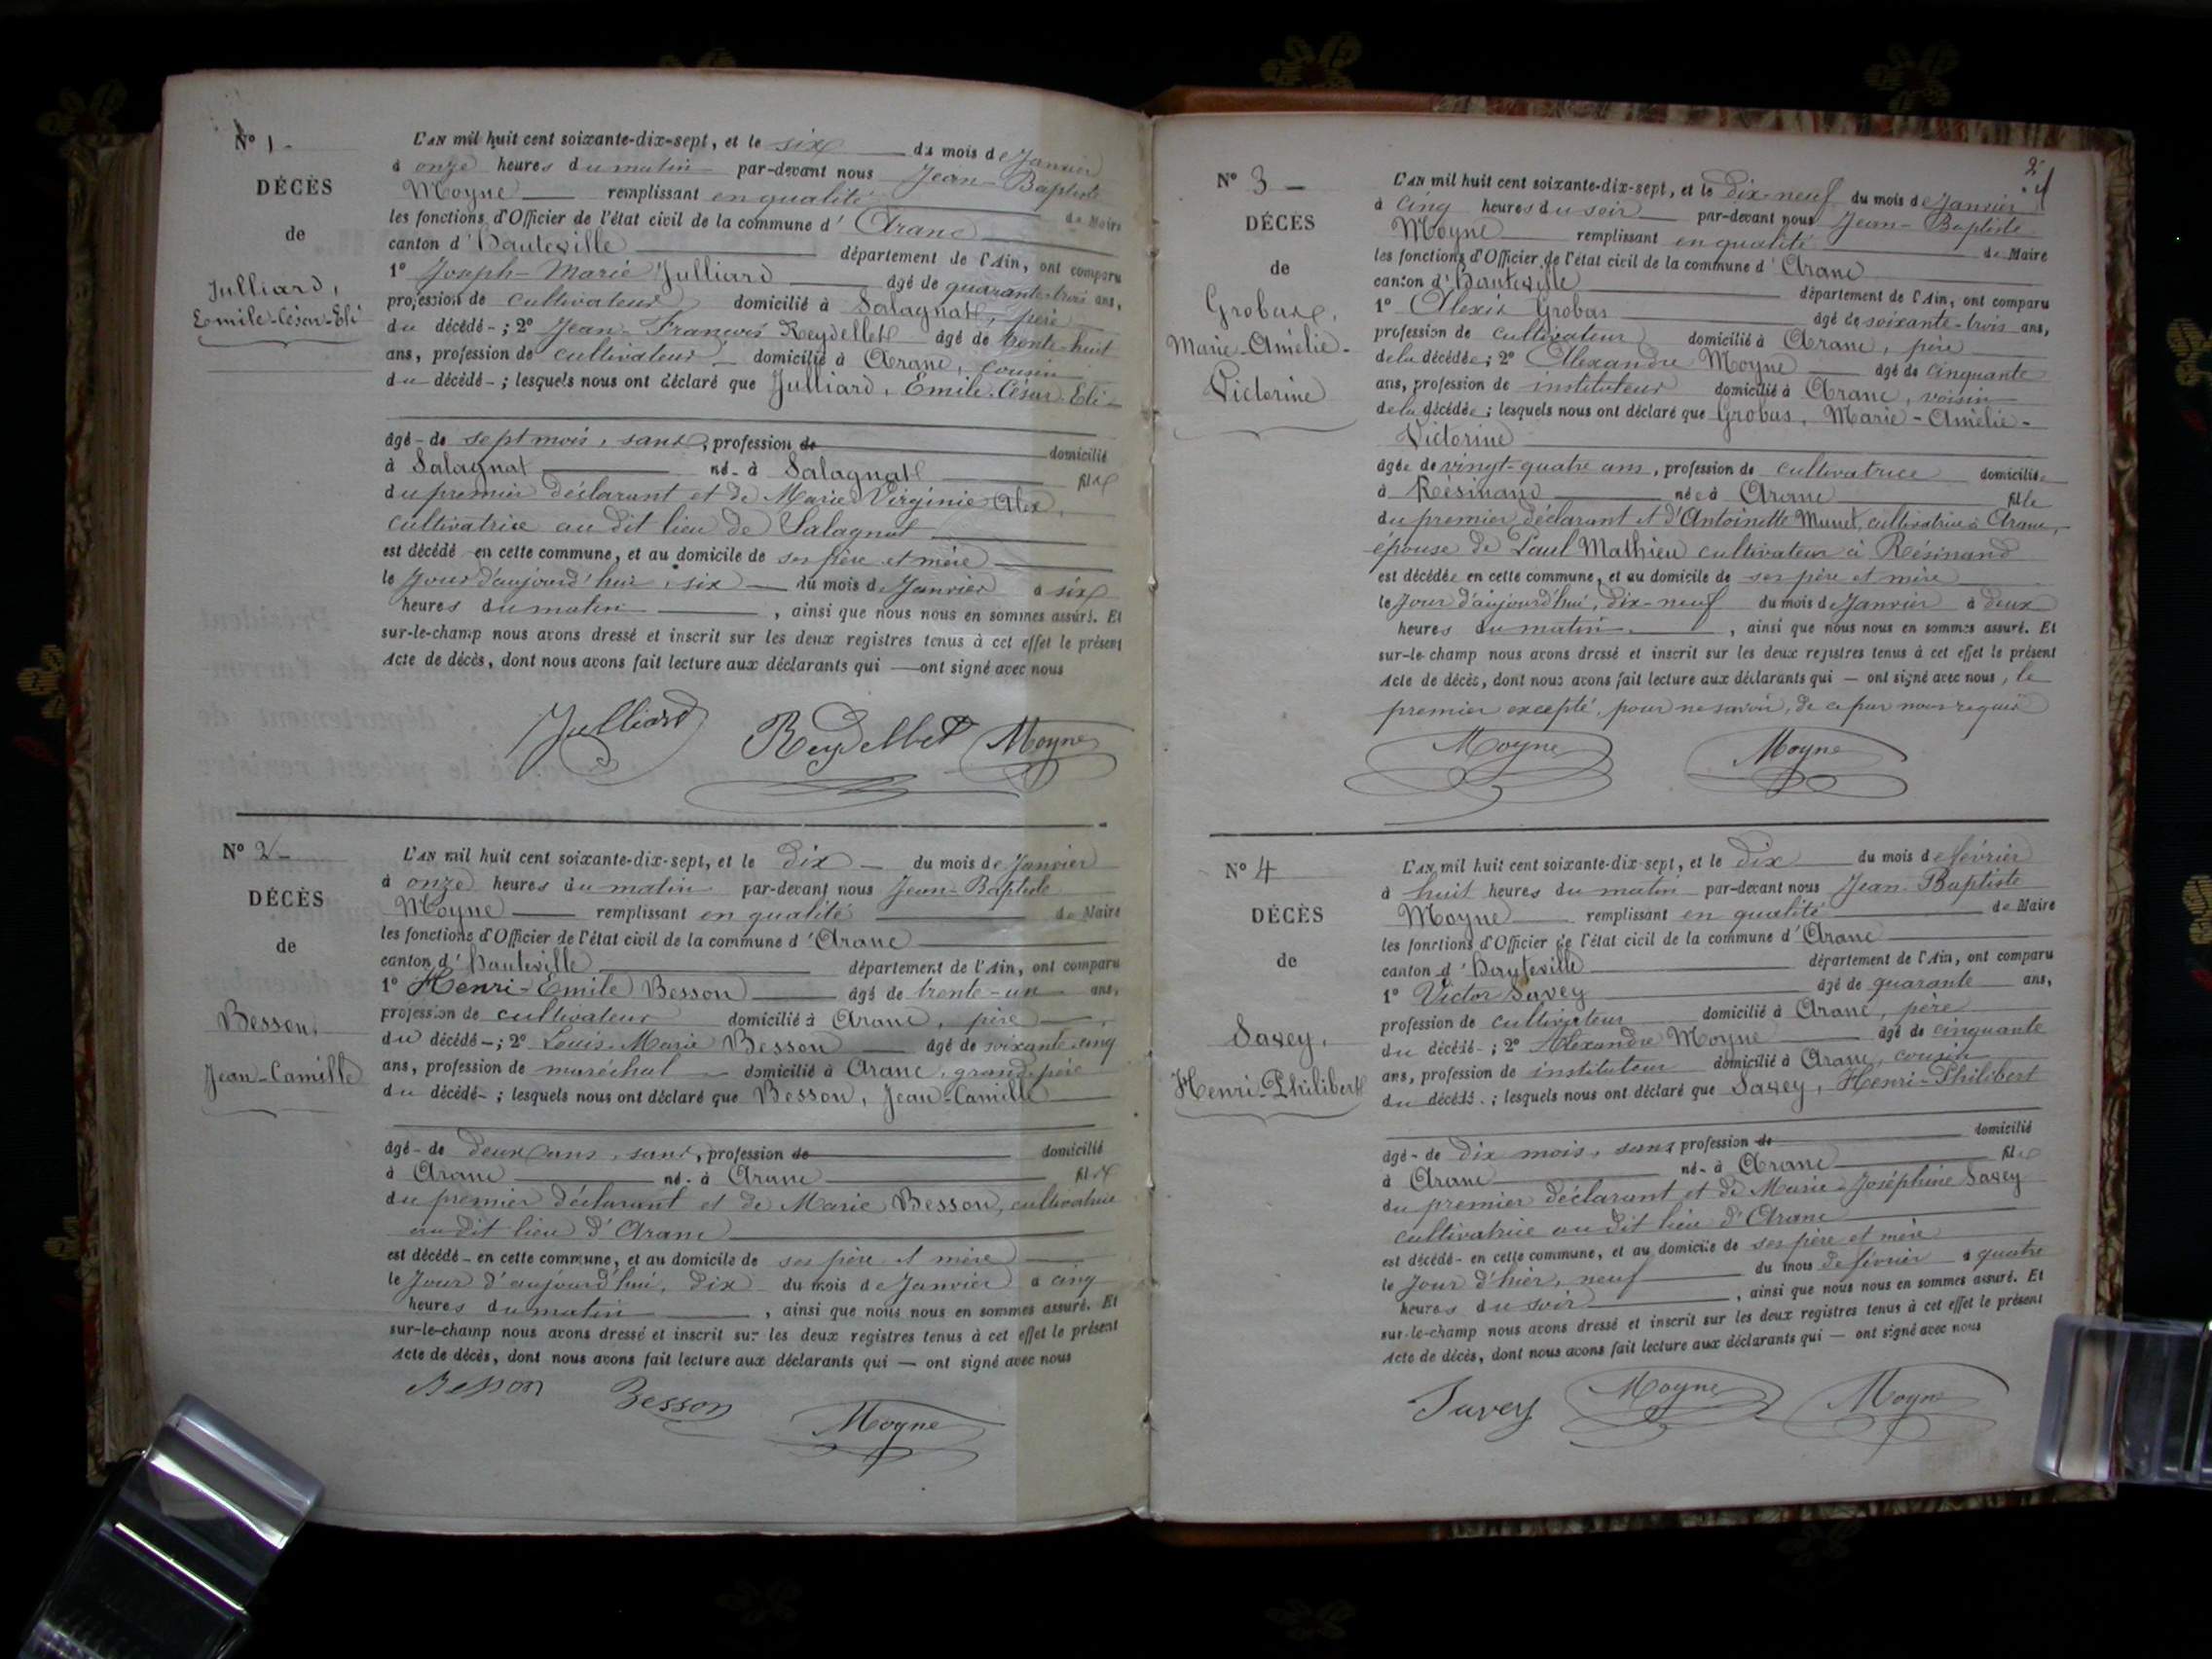 N° 1 -
DÉCÈS
de
Julliard,
Emile-César-Eli
L'AN mil huit cent soixante-dix-sept, et le six du mois de Janvier
à onze heures du matin par-devant nous Jean-Baptiste
Moyne remplissant en qualité de Maire
les fonctions d'Officier de l'état civil de la commune d'Aranc
canton d'Hauteville département de l'Ain, ont comparu
1° Joseph-Marie Julliard âgé de quarante-trois ans,
profession de cultivateur domicilié à Salagnat, père
du décédé - ; 2° Jean-François Reydellet âgé de trente-huit
ans, profession de cultivateur domicilié à Aranc, cousin
du décédé - ; lesquels nous ont déclaré que Julliard, Emile-César-Eli
âgé - de sept mois, sans, profession de domicilié
à Salagnat né - à Salagnat fils
du premier déclarant et de Marie Virginie Alex,
cultivatrice au dit lieu de Salagnat
est décédé - en cette commune, et au domicile de ses père et mère
le Jour d'aujourd'hui, six du mois de Janvier à six
heures du matin , ainsi que nous nous en sommes assuré. Et
sur-le-champ nous avons dressé et inscrit sur les deux registres tenus à cet effet le présent
Acte de décès, dont nous avons fait lecture aux déclarants qui — ont signé avec nous
Julliard Reydellet Moyne
N° 2 -
DÉCÈS
de
Besson,
Jean-Camille
L'AN mil huit cent soixante-dix-sept, et le dix du mois de Janvier
à onze heures du matin par-devant nous Jean-Baptiste
Moyne remplissant en qualité de Maire
les fonctions d'Officier de l'état civil de la commune d'Aranc
canton d'Hauteville département de l'Ain, ont comparu
1° Henri-Emile Besson âgé de trente-un ans,
profession de cultivateur domicilié à Aranc, père
du décédé - ; 2° Louis-Marie Besson âgé de soixante-cinq
ans, profession de maréchal domicilié à Aranc, grand-père
du décédé - ; lesquels nous ont déclaré que Besson, Jean-Camille
âgé - de deux ans, sans, profession de domicilié
à Aranc né - à Aranc fils
du premier déclarant et de Marie Besson, cultivatrice
au dit lieu d'Aranc
est décédé - en cette commune, et au domicile de ses père et mère
le Jour d'aujourd'hui, dix du mois de Janvier à cinq
heures du matin , ainsi que nous nous en sommes assuré. Et
sur-le-champ nous avons dressé et inscrit sur les deux registres tenus à cet effet le présent
Acte de décès, dont nous avons fait lecture aux déclarants qui — ont signé avec nous
Besson Besson Moyne
2
N° 3 -
DÉCÈS
de
Grobas,
Marie-Amélie-
Victorine
L'AN mil huit cent soixante-dix-sept, et le dix-neuf du mois de Janvier
à cinq heures du soir par-devant nous Jean-Baptiste
Moyne remplissant en qualité de Maire
les fonctions d'Officier de l'état civil de la commune d'Aranc
canton d'Hauteville département de l'Ain, ont comparu
1° Alexis Grobas âgé de soixante-trois ans,
profession de cultivateur domicilié à Aranc, père
de la décédée ; 2° Alexandre Moyne âgé de cinquante
ans, profession de instituteur domicilié à Aranc, voisin
de la décédée ; lesquels nous ont déclaré que Grobas, Marie-Amélie-
Victorine
âgée de vingt-quatre ans, profession de cultivatrice domiciliée
à Résinand née à Aranc fille
du premier déclarant et d'Antoinette Munet, cultivatrice à Aranc,
épouse de Paul Mathieu cultivateur à Résinand
est décédée en cette commune, et au domicile de ses père et mère
le Jour d'aujourd'hui, dix-neuf du mois de Janvier à deux
heures du matin , ainsi que nous nous en sommes assuré. Et
sur-le-champ nous avons dressé et inscrit sur les deux registres tenus à cet effet le présent
Acte de décès, dont nous avons fait lecture aux déclarants qui — ont signé avec nous, le
premier excepté, pour ne savoir, de ce par nous requis
Moyne Moyne
N° 4
DÉCÈS
de
Savey,
Henri-Philibert
L'AN mil huit cent soixante-dix-sept, et le dix du mois de février
à huit heures du matin par-devant nous Jean-Baptiste
Moyne remplissant en qualité de Maire
les fonctions d'Officier de l'état civil de la commune d'Aranc
canton d'Hauteville département de l'Ain, ont comparu
1° Victor Savey âgé de quarante ans,
profession de cultivateur domicilié à Aranc, père
du décédé - ; 2° Alexandre Moyne âgé de cinquante
ans, profession de instituteur domicilié à Aranc, cousin
du décédé - ; lesquels nous ont déclaré que Savey, Henri-Philibert
âgé - de dix mois, sans profession de domicilié
à Aranc né - à Aranc fils
du premier déclarant et de Marie-Joséphine Savey
cultivatrice au dit lieu d'Aranc
est décédé - en cette commune, et au domicile de ses père et mère
le Jour d'hier, neuf du mois de février à quatre
heures du soir , ainsi que nous nous en sommes assuré. Et
sur-le-champ nous avons dressé et inscrit sur les deux registres tenus à cet effet le présent
Acte de décès, dont nous avons fait lecture aux déclarants qui — ont signé avec nous
Savey Moyne Moyne